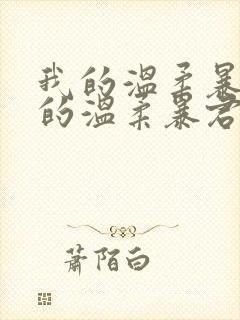 我的温柔暴
的温柔暴君
萧陌白